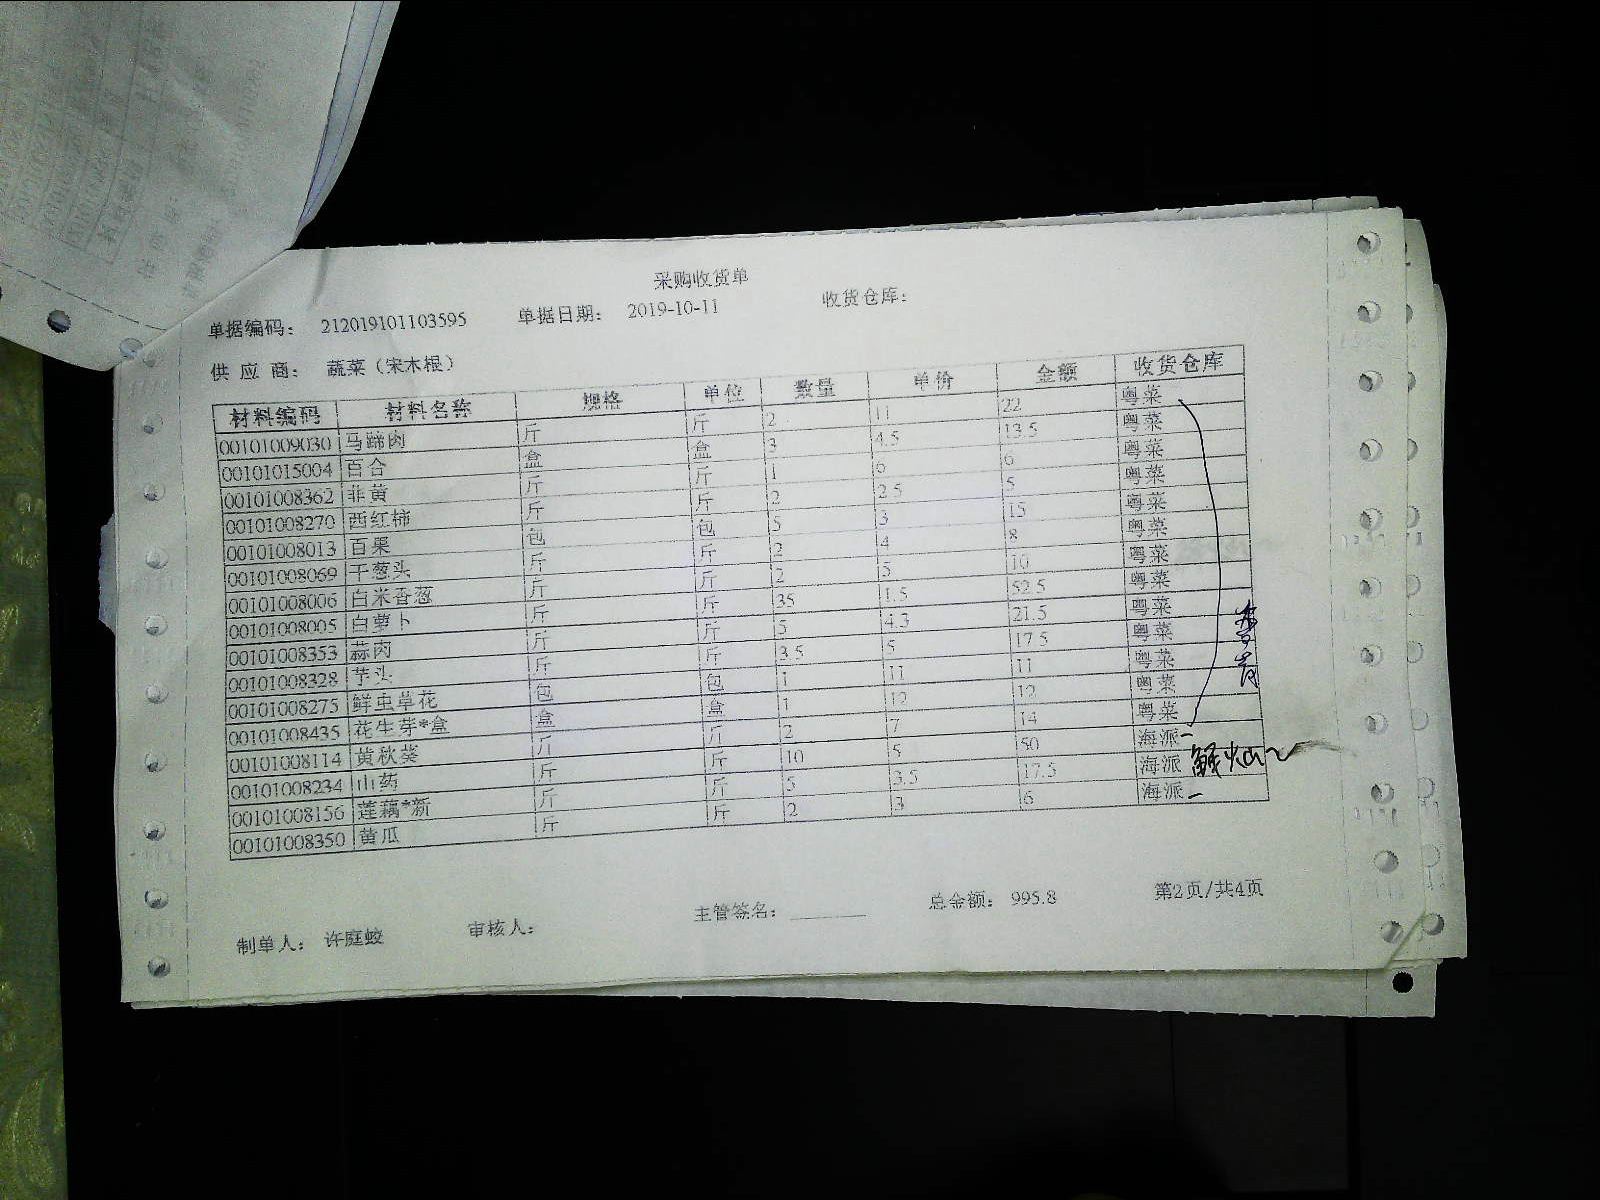 采购收货单
单据编码： 212019101103595 单据日期： 2019-10-11 收货仓库：
供 应 商： 蔬菜（宋木根）
材料编码 材料名称 规格 单位 数量 单价 金额 收货仓库
00101009030 马蹄肉 斤 斤 2 11 22 粤菜
00101015004 百合 盒 盒 3 4.5 13.5 粤菜
00101008362 韭黄 斤 斤 1 6 6 粤菜
00101008270 西红柿 斤 斤 2 2.5 5 粤菜
00101008013 百果 包 包 5 3 15 粤菜
00101008069 干葱头 斤 斤 2 4 8 粤菜
00101008006 白米香葱 斤 斤 2 5 10 粤菜
00101008005 白萝卜 斤 斤 35 1.5 52.5 粤菜
00101008353 蒜肉 斤 斤 5 4.3 21.5 粤菜
00101008328 芋头 斤 斤 3.5 5 17.5 粤菜
00101008275 鲜虫草花 包 包 1 11 11 粤菜
00101008435 花生芽*盒 盒 盒 1 12 12 粤菜
00101008114 黄秋葵 斤 斤 2 7 14 粤菜
00101008234 山药 斤 斤 10 5 50 海派
00101008156 莲藕*新 斤 斤 5 3.5 17.5 海派
00101008350 黄瓜 斤 斤 2 3 6 海派
制单人： 许庭蛟 审核人： 主管签名： 总金额： 995.8 第2页/共4页